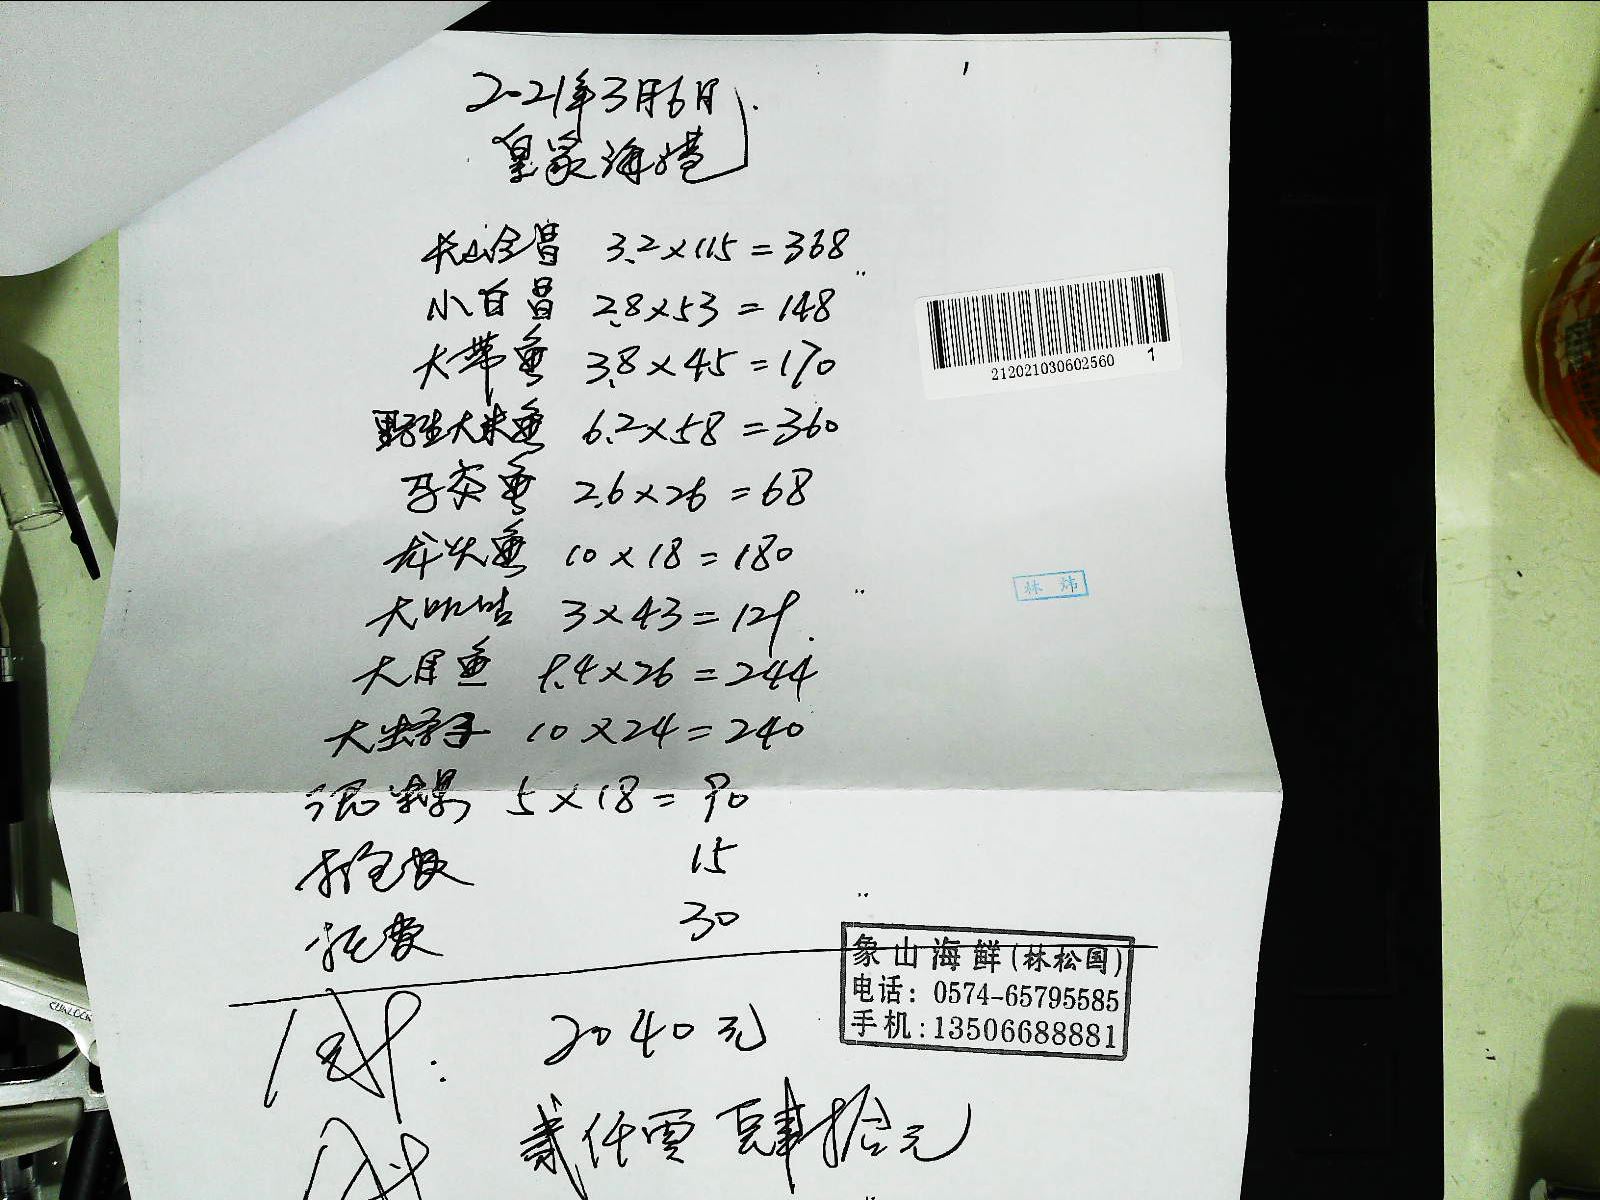 2021年3月6日
皇家海港
长山全昌 3.2×115=368
小白昌 2.8×53=148
大带鱼 3.8×45=170
野生大米鱼 6.2×58=360
马交鱼 2.6×26=68
龙头鱼 10×18=180
大 3×43=129
大目鱼 9.4×26=244
大虫孑子 10×24=240
泥螺 5×18=90
打包费 15
托费 30
2040元
贰仟零肆拾元
212021030602560 1
林炜
象山海鲜(林松国)
电话:0574-65795585
手机:13506688881